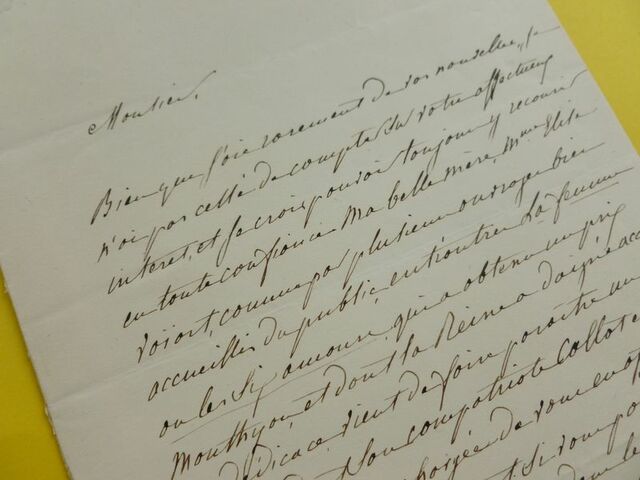 Monsieur,
Bien que j'aie rarement de vos nouvelles, je
n'ai pas cessé de compter sur votre affectueux
intérêt, et je crois pouvoir toujours y recourir
en toute confiance. Ma belle mère, Mme Elise
Voïart, connue par plusieurs ouvrages bien
accueillis du public, entr'autres La femme
ou les Six amours, qui a obtenu un prix
Monthyon, et dont la Reine a daigné acc
dédicace, vient de faire paraître un
son compatriote Callot e
chargée de vous en off
si vous
dans le